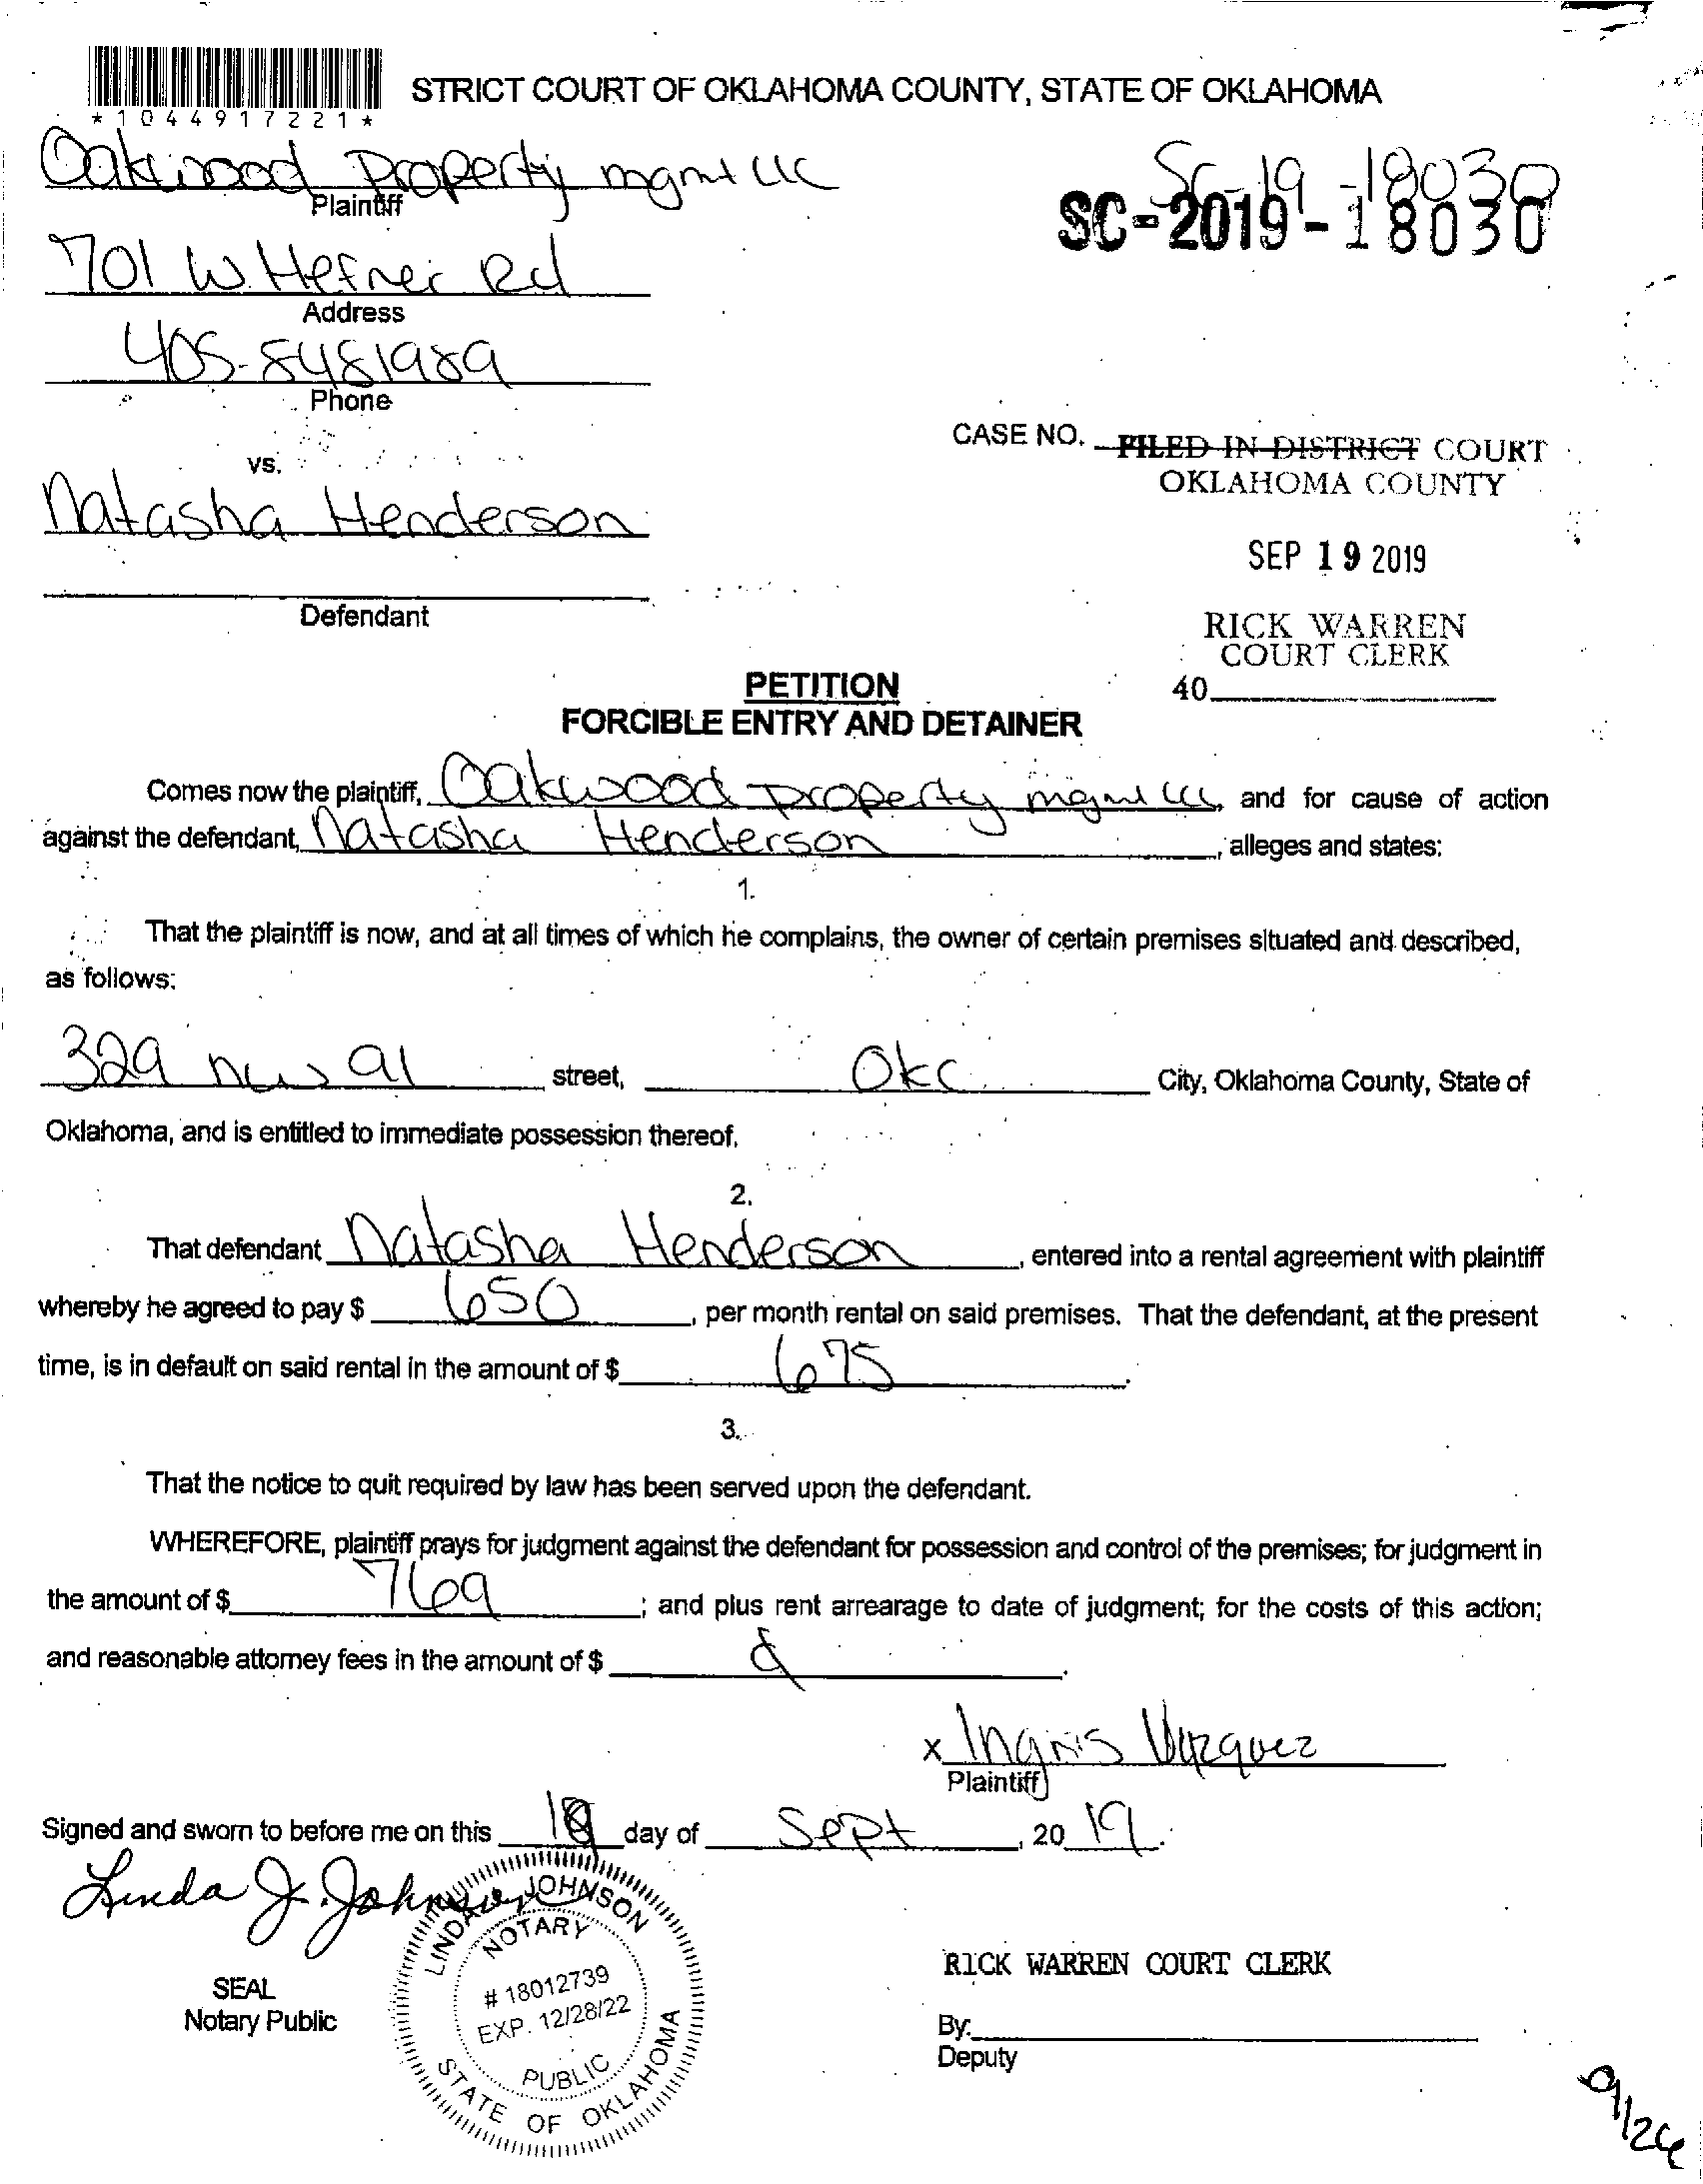 STRICT COURT OF OKLAHOMA COUNTY, STATE OF OKLAHOMA
*1044917221*
Oakwood Property mgmt LLC
Plaintiff
SC-19-18030
SC-2019-18030
701 W. Hefner Rd
Address
405-8481989
Phone
vs.
CASE NO. FILED IN DISTRICT COURT
OKLAHOMA COUNTY
Natasha Henderson
SEP 19 2019
Defendant
RICK WARREN
COURT CLERK
40
PETITION
FORCIBLE ENTRY AND DETAINER
Comes now the plaintiff, Oakwood Property mgmt LLC, and for cause of action
against the defendant, Natasha Henderson, alleges and states:
1.
That the plaintiff is now, and at all times of which he complains, the owner of certain premises situated and described,
as follows:
329 nw 91 street, OKC City, Oklahoma County, State of
Oklahoma, and is entitled to immediate possession thereof.
2.
That defendant Natasha Henderson, entered into a rental agreement with plaintiff
whereby he agreed to pay $ 650, per month rental on said premises. That the defendant, at the present
time, is in default on said rental in the amount of $ 675.
3.
That the notice to quit required by law has been served upon the defendant.
WHEREFORE, plaintiff prays for judgment against the defendant for possession and control of the premises; for judgment in
the amount of $ 769; and plus rent arrearage to date of judgment; for the costs of this action;
and reasonable attorney fees in the amount of $ .
x Ingris Vazquez
Plaintiff
Signed and sworn to before me on this day of Sept, 20 19.
Linda J. Johnson
LINDA JOHNSON
NOTARY
# 18012739
EXP. 12/28/22
PUBLIC
STATE OF OKLAHOMA
SEAL
Notary Public
RICK WARREN COURT CLERK
By:
Deputy
9/26